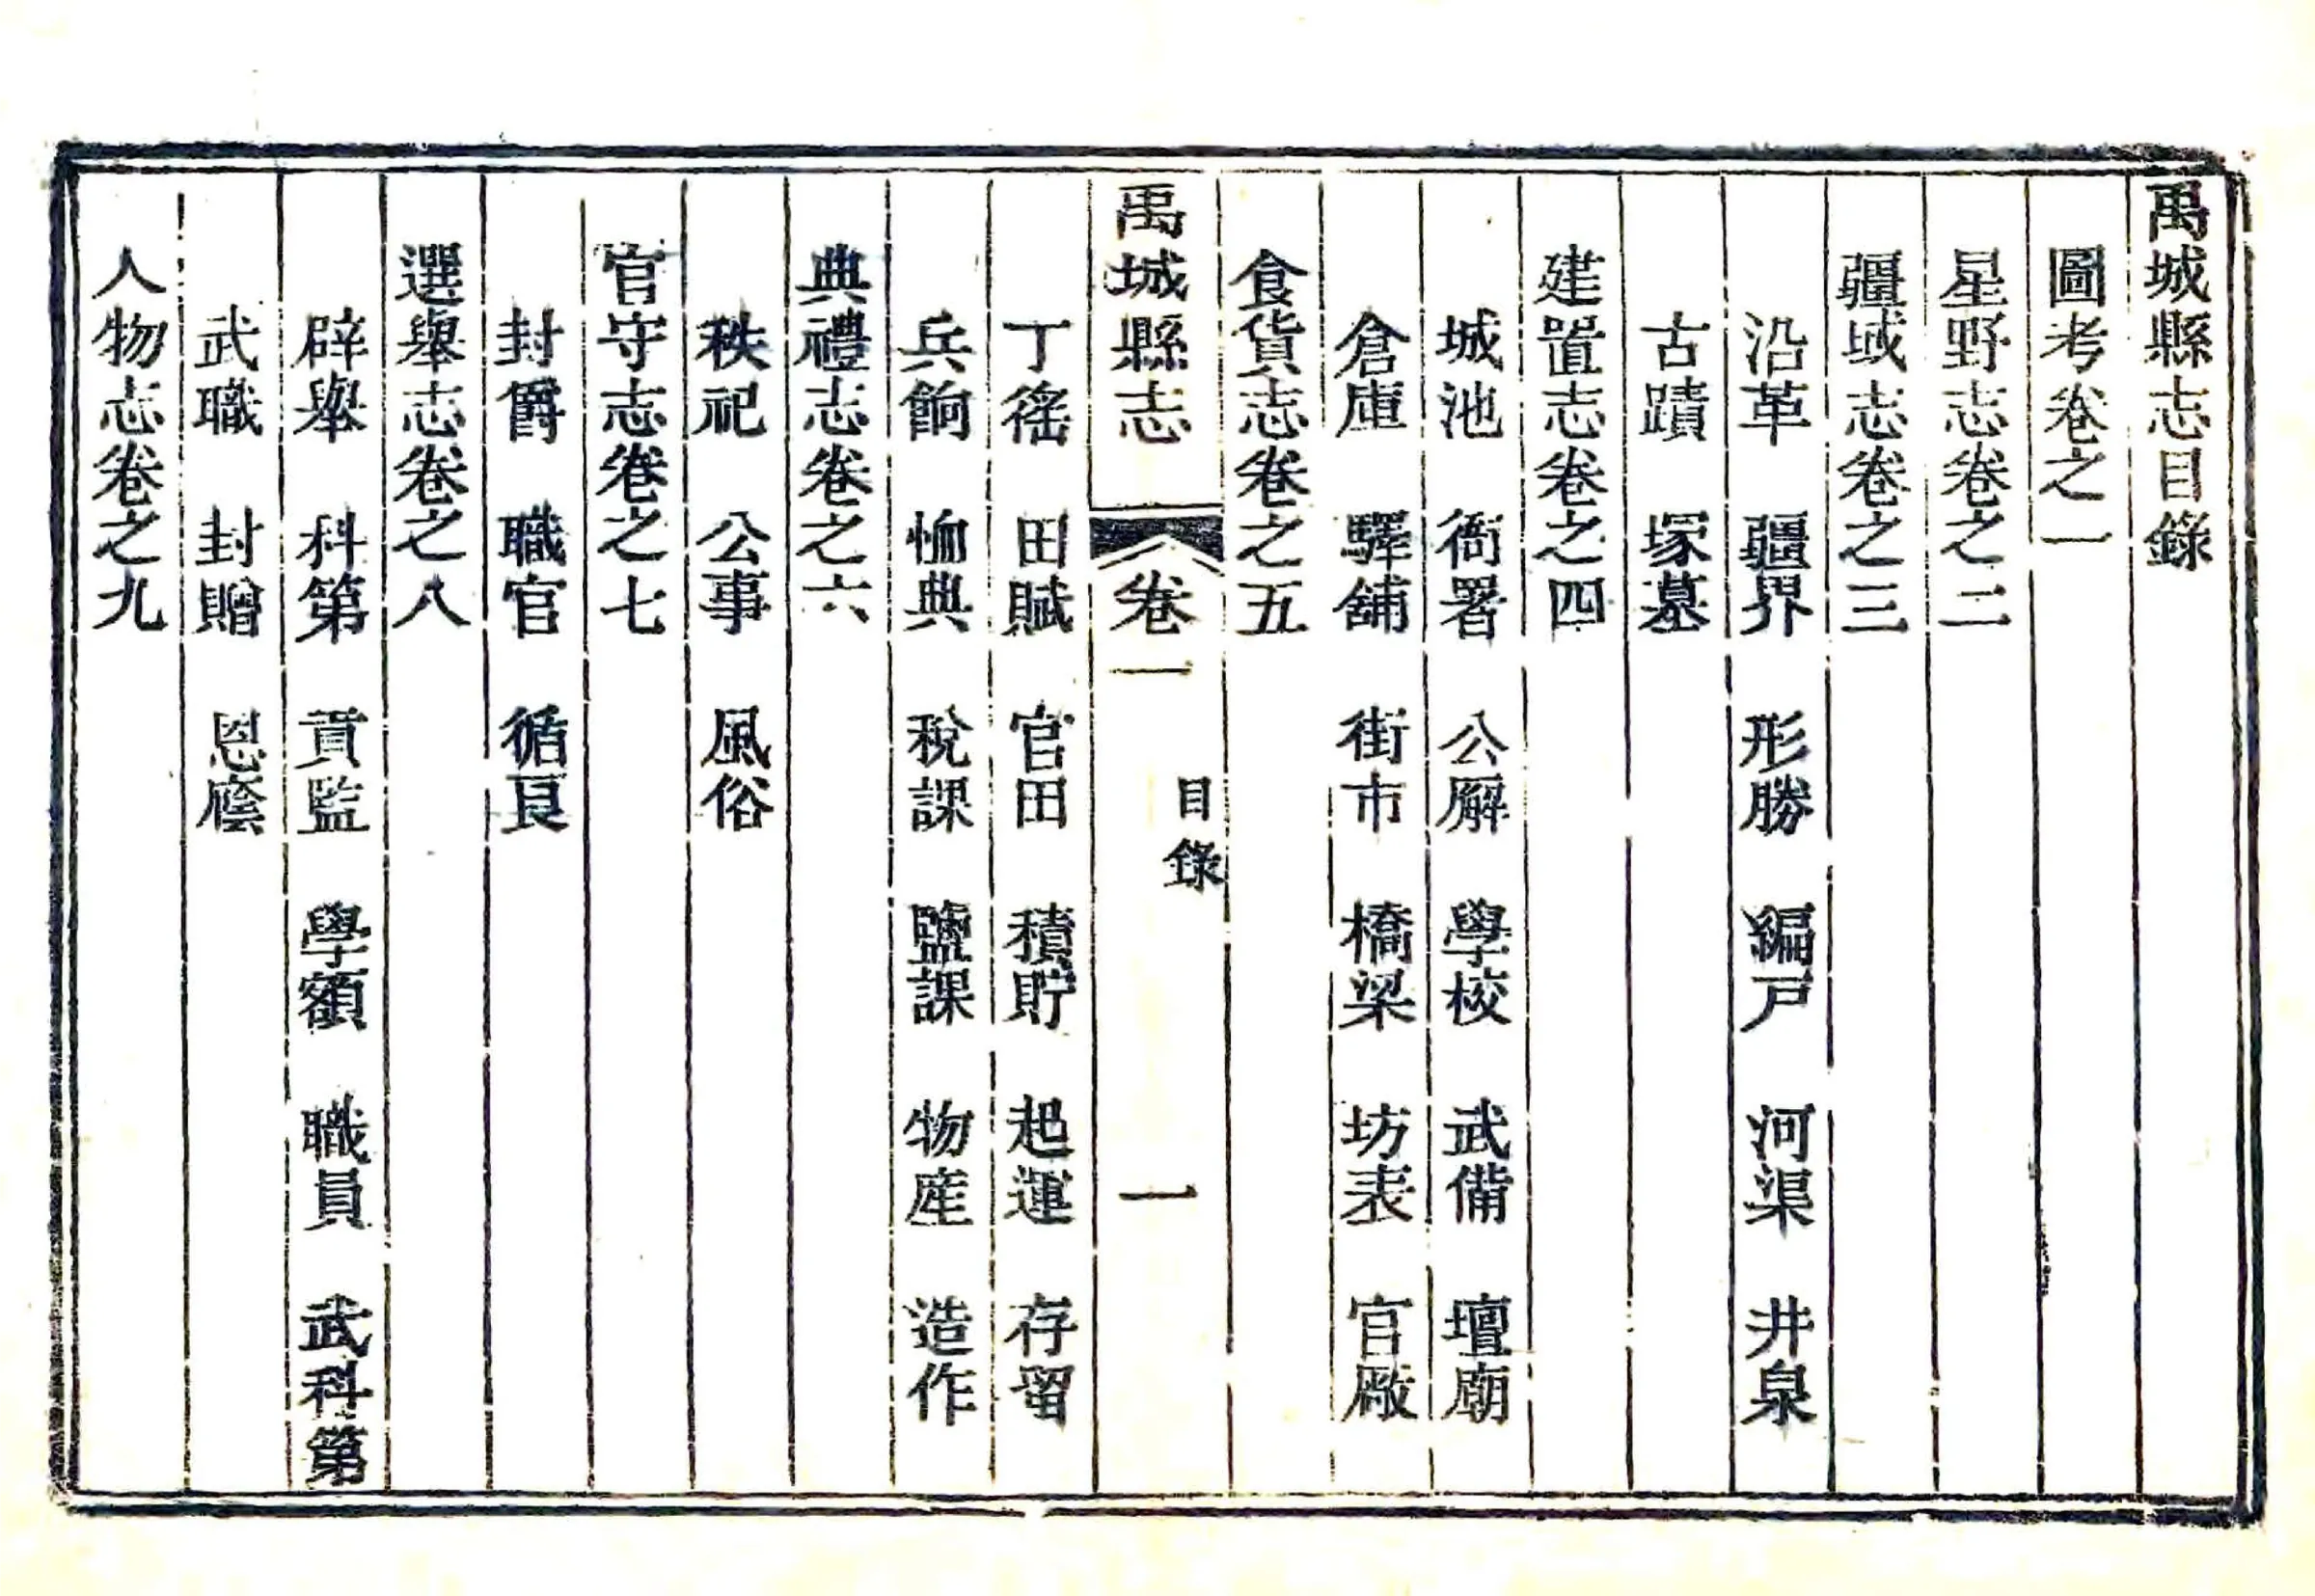 禹城縣志目錄
圖考卷之一
星野志卷之二
疆域志卷之三
沿革 疆界 形勝 編戸 河渠 井泉
古蹟 塚墓
建置志卷之四
城池 衙署 公廨 學校 武備 壇廟
倉庫 驛舖 街市 橋梁 坊表 官厰
食貨志卷之五
禹城縣志 卷一 目錄 一
丁徭 田賦 官田 積貯 起運 存留
兵餉 恤典 稅課 鹽課 物產 造作
典禮志卷之六
秩祀 公事 風俗
官守志卷之七
封爵 職官 循良
選舉志卷之八
辟舉 科第 貢監 學額 職員 武科第
武職 封贈 恩廕
人物志卷之九